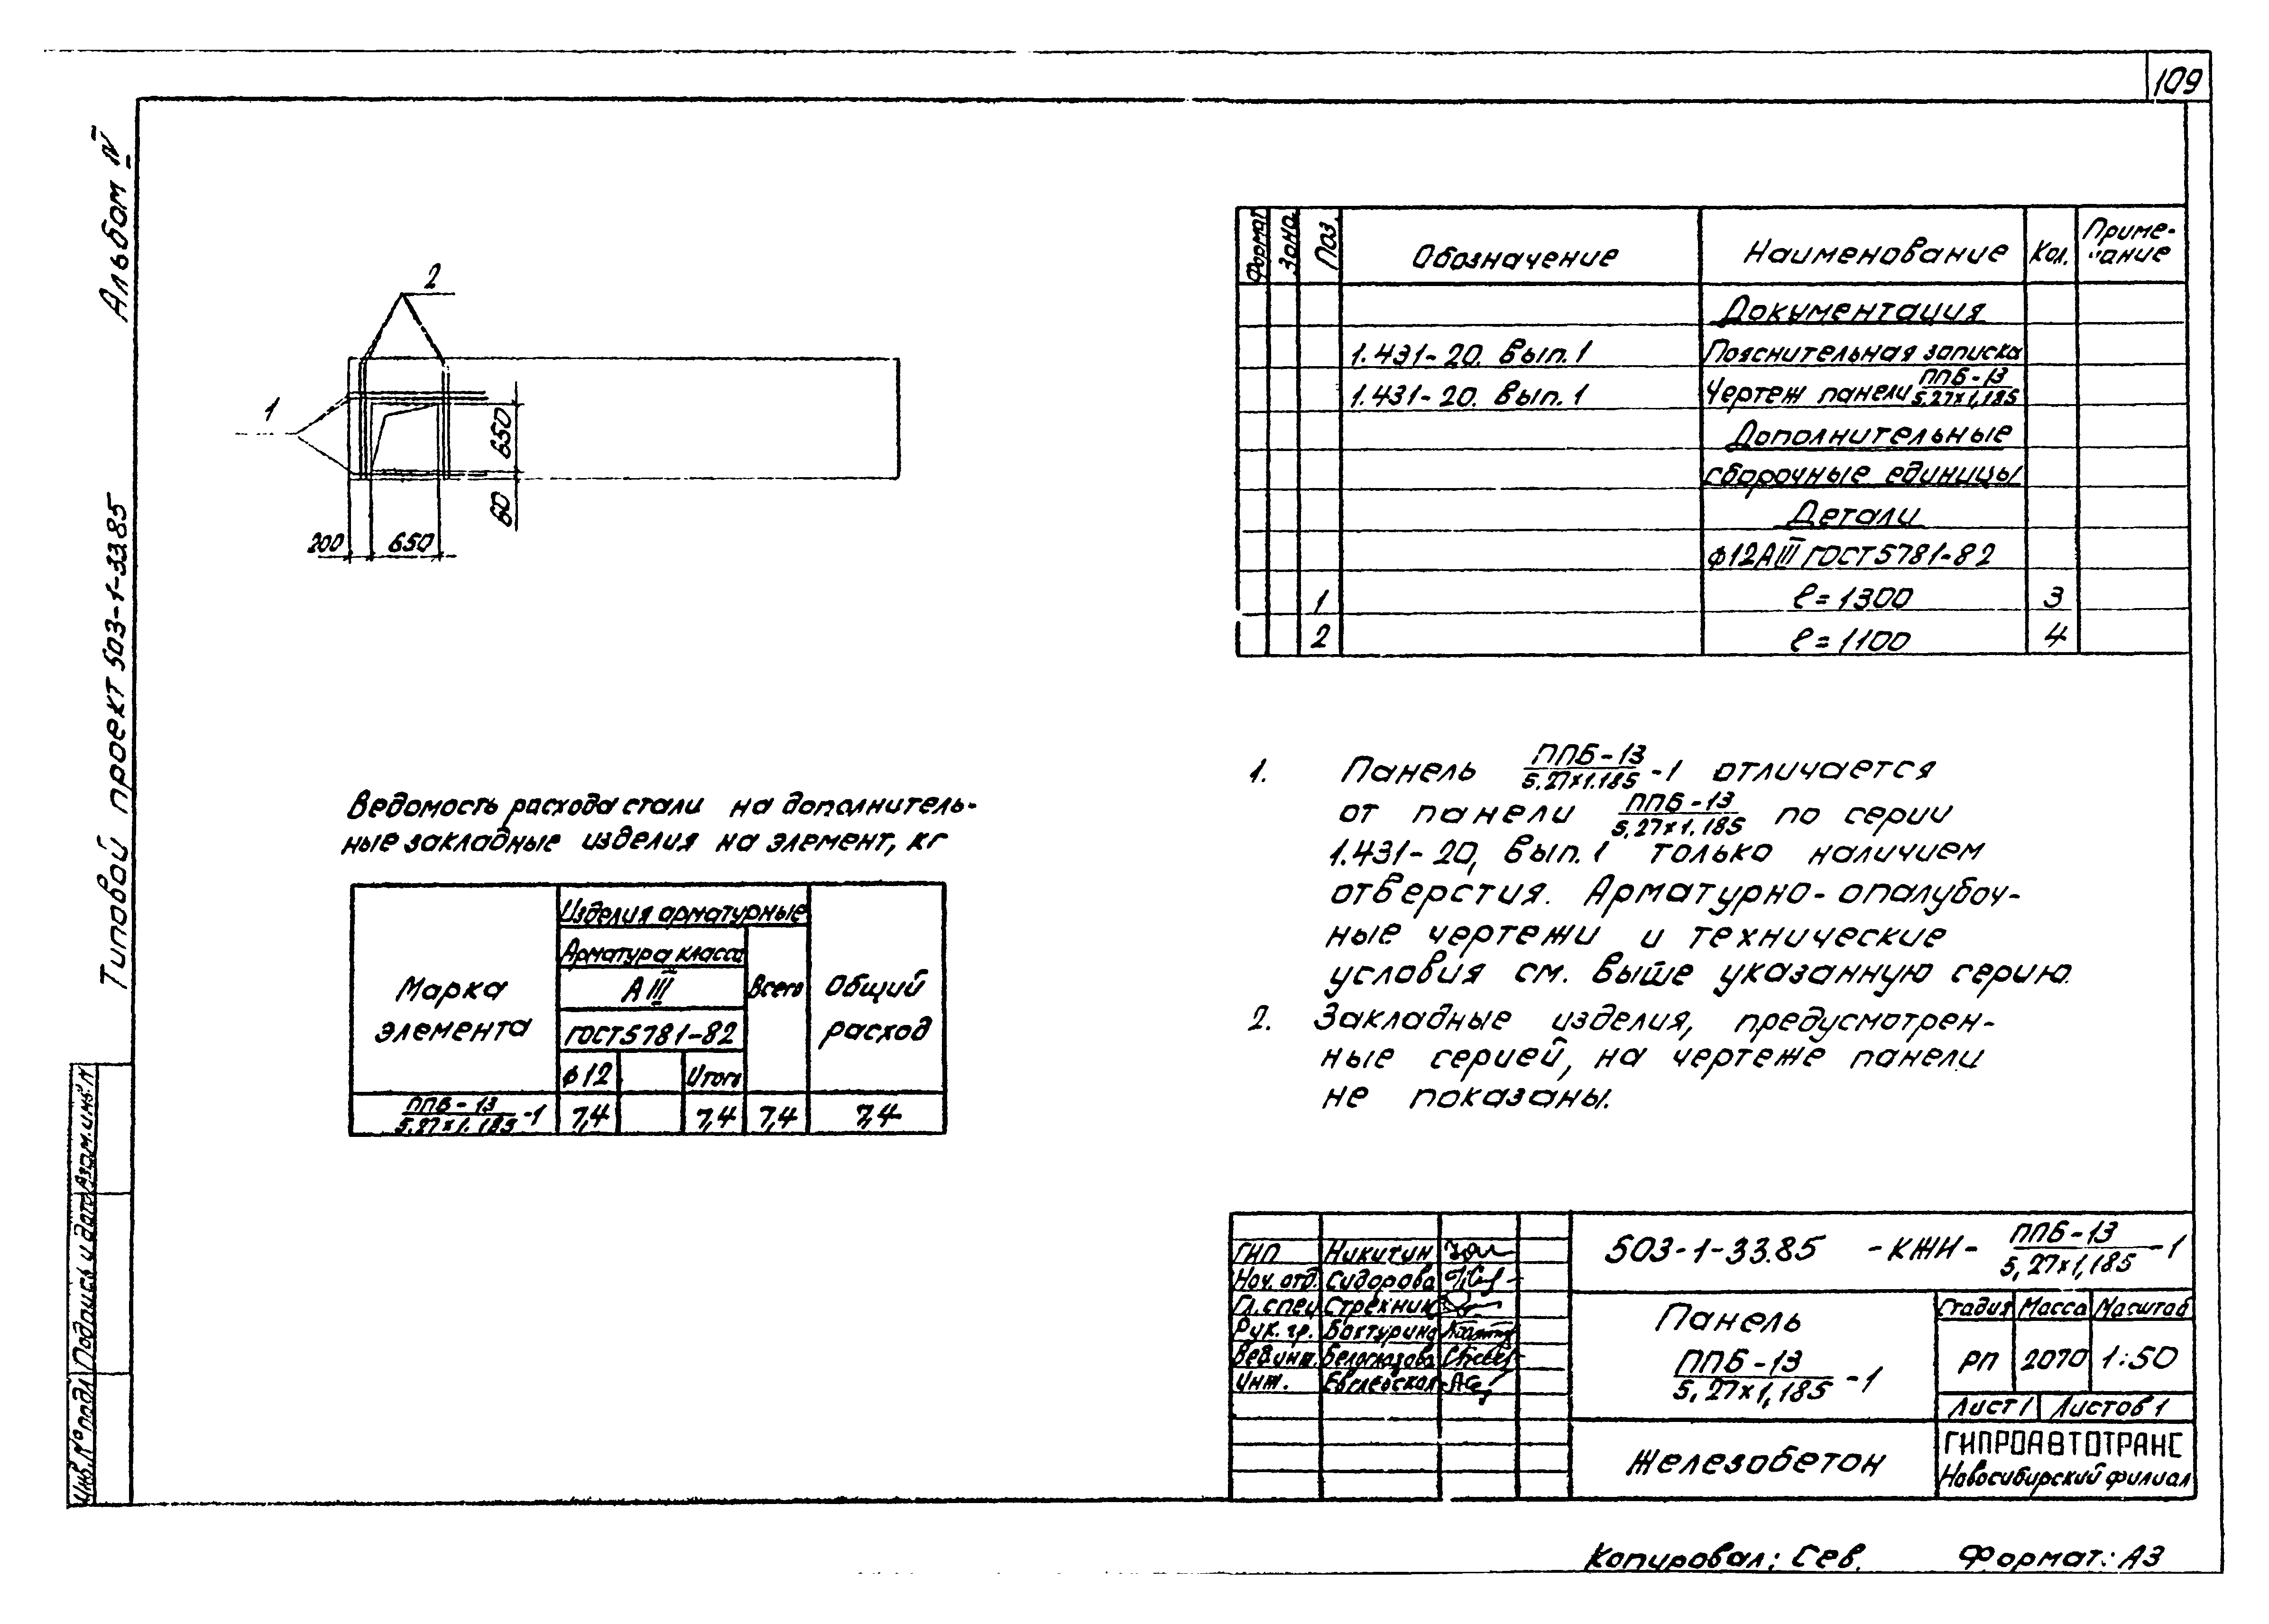 109
Альбом IV
Типовой проект 503-1-33.85
Инв.№ подл Подпись и дата Взам.инв.№
2
1
650
60
200 650
Формат Зона Поз. Обозначение Наименование Кол. Приме-
чание
Документация
1.431-20. Вып.1 Пояснительная записка
1.431-20. Вып.1 Чертеж панели ППБ-13
5,27х1,185
Дополнительные
сборочные единицы
Детали
ф12АIII ГОСТ5781-82
1 ℓ=1300 3
2 ℓ=1100 4
Ведомость расхода стали на дополнитель-
ные закладные изделия на элемент, кг
Марка
элемента
Изделия арматурные
Арматура класса
А III
ГОСТ5781-82
ф12 Итого
Всего
Общий
расход
ППБ-13
5,27х1.185 -1 7,4 7,4 7,4 7,4
1. Панель ППБ-13
5.27х1.185 -1 отличается
от панели ППБ-13
5,27х1.185 по серии
1.431-20, Вып.1 только наличием
отверстия. Арматурно-опалубоч-
ные чертежи и технические
условия см. выше указанную серию.
2. Закладные изделия, предусмотрен-
ные серией, на чертеже панели
не показаны.
ГИП Никитин
Нач.отд. Сидорова
Гл.спец Стрехнин
Рук.гр. Бактурина
Вед.инж. Белоглазова
Инж.
503-1-33.85 -КЖИ- ППБ-13
5,27х1,185 -1
Панель
ППБ-13
5,27х1,185 -1
Стадия Масса Масштаб
РП 2070 1:50
Лист 1 Листов 1
Железобетон
ГИПРОАВТОТРАНС
Новосибирский филиал
Копировал: Сев. Формат: А3